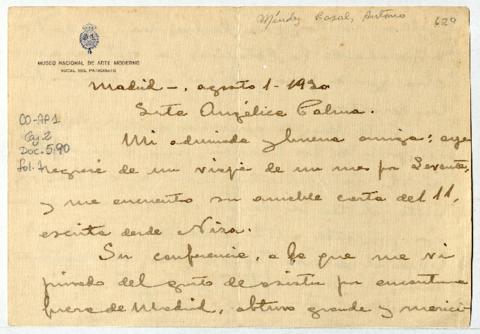 Méndez Casal, Antonio
620
MUSEO NACIONAL DE ARTE MODERNO
VOCAL DEL PATRONATO
Madrid -, agosto 1 - 1930
Srta Angélica Palma.
CO-AP.1
Caj.2
Doc.590
fol.1
Mi admirada y buena amiga: ayer
regresé de un viaje de un mes por Levante,
y me encuentro su amable carta del 11,
escrita desde Niza.
Su conferencia, a la que me vi
privado del gusto de asistir por encontrarme
fuera de Madrid, obtuvo grande y mereci-